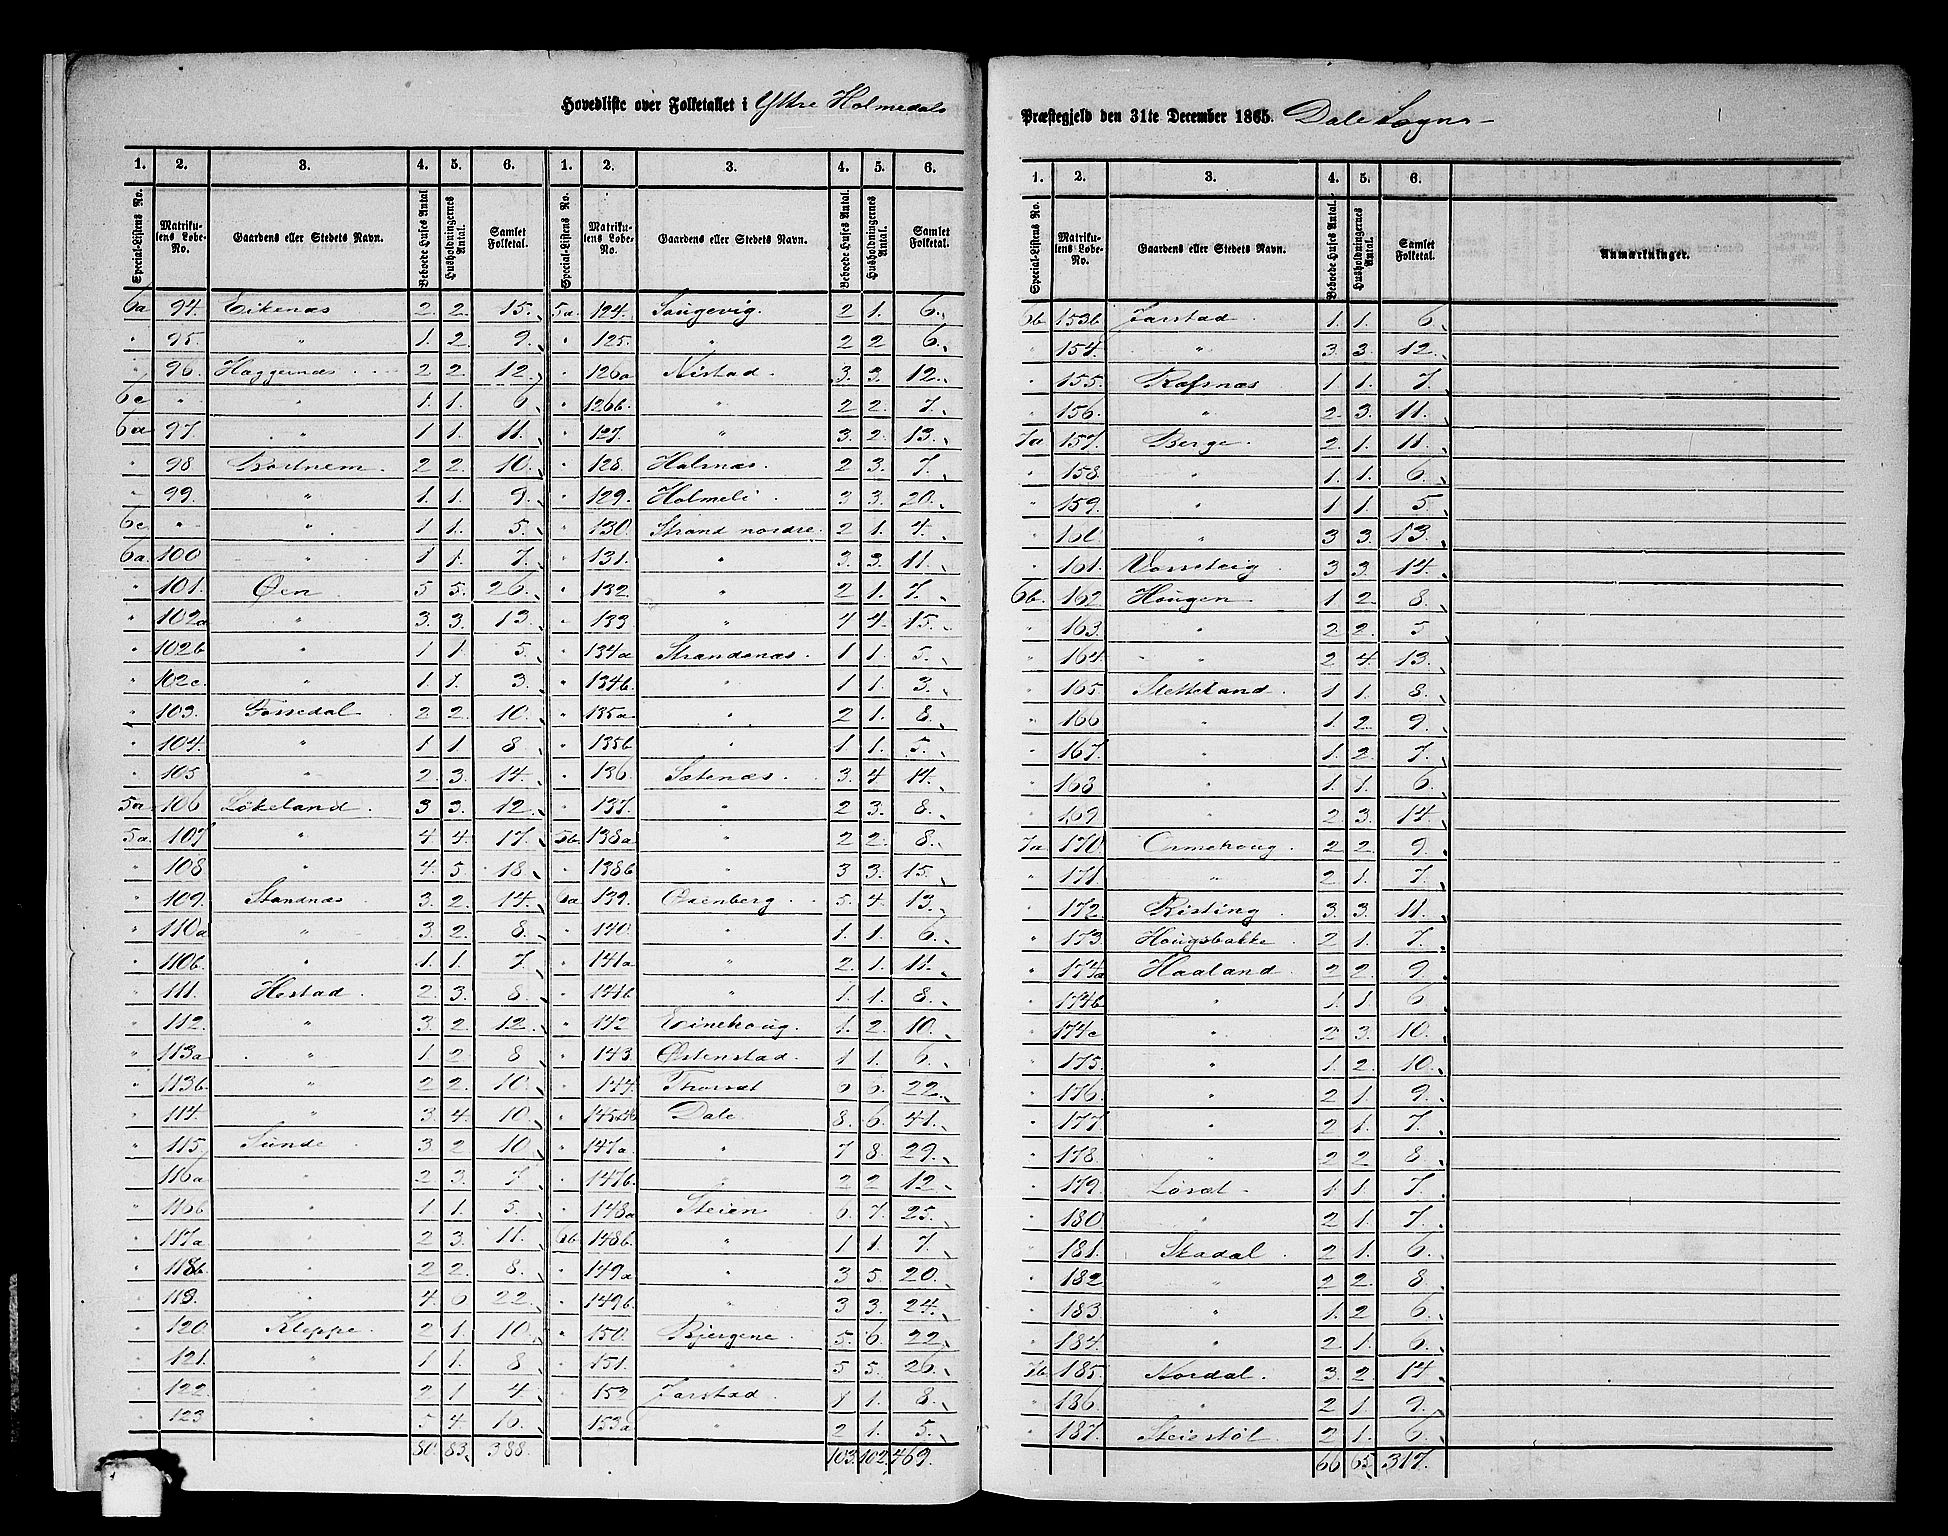 Hovedliste over Folketallet i Yttre Holmedals
Præstegjeld den 31te December 1865. Dale Sogn
1. 2. 3. 4. 5. 6. 1. 2. 3. 4. 5. 6.
Special-Listens No. Matrikulens Løbe-No. Gaardens eller Stedets Navn. Beboede Huses Antal Husholdningernes Antal. Samlet Folketal. Special-Listens No. Matrikulens Løbe-No. Gaardens eller Stedets Navn. Beboede Huses Antal. Husholdningernes Antal. Samlet Folketal.
6a 94. Eikenæs 2. 2. 15. 5a. 124. Songevig. 2 1. 6.
" 95. " 1. 2 9. " 125. " 2 2 6.
" 96. Haggernæs 2 2 12. " 126a Nistad 3. 3. 12.
6c " " 1. 1. 6 " 126b. " 2 2. 7.
6a 97. " 1 1. 11. " 127. " 3. 2. 13.
" 98 Kortnem. 2 2. 10. " 128. Holmæs. 2 3. 7.
" 99. " 1. 1. 9. " 129. Holmeli 3 3. 20.
6c. " " 1 1. 5. " 130. Strand nordre. 2 1. 4.
6a. 100 " 1 1. 7. " 131. " 3. 3. 11.
" 101. Øen 5 5. 26. " 132. " 2 1. 7.
" 102a " 3. 3. 13. " 133 " 4 4. 15.
" 102b " 1 1. 5. " 134a Strandenæs. 1 1. 5.
" 102c. " 1. 1. 3. " 134b. " 1 1. 3.
" 103. Fossedal 2 2. 10. " 135a " 2 1. 8.
" 104. " 1 1. 8. " 135b " 1 1. 5.
" 105 " 2. 3. 14. " 136. Sætenæs. 3. 4. 14.
5a 106 Løkeland 3 3. 12. " 137. " 2 3. 8.
5a. 107 " 4 4. 17. 5b. 138a " 2 2. 8.
" 108 " 4. 5. 18. " 138b " 3 3. 15.
" 109. Standnæs 3. 2. 14. 6a 139. Oxenberg 5 4. 13.
" 110a " 3. 2. 8. " 140. " 1. 1. 6.
" 110b. " 1. 1. 7. " 141a " 2. 1. 11.
" 111. Hestad 2. 3. 8. " 141b " 1. 1. 8.
" 112. " 3. 2. 12. " 142 Erinehoug. 1. 2. 10.
" 113a " 1 2. 8 " 143. Østenstad. 1 1. 6.
" 113b. " 2 2. 10. " 144. Thorsæt 6 6. 22.
" 114. " 3 4. 10. " Dale 8. 6. 41.
" 115. Sunde 3. 2. 10 " 147a. " 7 8. 29.
" 116a " 2 3. 7. " 147b. " 2 2. 12.
" 116b " 1 1. 5. " 148a Steien 6. 7. 25.
" 117a " 2 3. 11. 6b. 148b. " 1 1. 7.
" 118b. " 2 2. 8. " 149a " 3 5. 20.
" 119. " 4. 6 22. " 149b. " 3 3. 24.
" 120. Kleppe. 2 1. 10. " 150. Bjergene 5. 6. 22.
" 121. " 1 1. 8 " 151. " 5 5. 26.
" 122. " 2 1. 4. " 152 Jarstad 1 1. 8.
" 123 " 5 4. 10. " 153a " 2 1. 5.
80. 83. 388. 103. 102. 469.
1. 2. 3. 4. 5. 6.
Special-Listens No. Matrikulens Løbe-No. Gaardens eller Stedets Navn. Beboede Huses Antal. Husholdningernes Antal. Samlet Folketal. Anmærkninger.
6b 153b Jarstad 1. 1. 6.
" 154. " 3. 3. 12.
" 155. Rafsnæs 1 1. 7.
" 156. " 2. 3. 11.
7a 157. Berge. 2. 1. 11.
" 158. " 1. 1. 6.
" 159. " 1 1. 5
" 160. " 3 3. 13.
" 161. Vasseteig 3 3. 14.
6b. 162. Hougen 1 2. 8.
" 163. " 2 2. 5
" 164. " 2 4. 13.
" 165. Sletteland 1 1. 8.
" 166 " 1. 2. 9.
" 167. " 1. 2 7.
" 168 " 1 1. 6.
" 169 " 2. 3. 14.
7a 170 Ormehoug. 2 2. 9.
" 171. " 2 1. 7.
" 172. Risting 3. 3. 11.
" 173. Hougsbakke 2 1. 7.
" 174a Haaland 2 2. 9.
" 174b " 1. 1 6.
" 174c " 2 3. 10.
" 175. " 1. 2. 10.
" 176. " 2 1. 9.
" 177. " 2 1. 7.
" 178. " 2 2 8.
" 179. Løsæt 1. 1. 7.
" 180 " 2 1. 7.
" 181. Skadal 2 1. 6.
" 182 " 2 2. 8.
" 183 " 1. 2 6.
" 184. " 2 1. 6.
7b 185. Nordal. 3. 2. 14.
" 186. " 2 1. 9.
" 187. Steiestøl 2 1. 6.
66 65. 317.